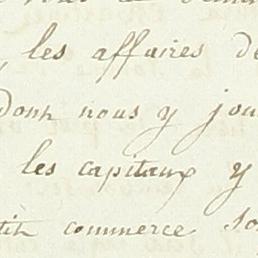 les affaires de
dont nous y jou
les capitaux y
tit commerce so